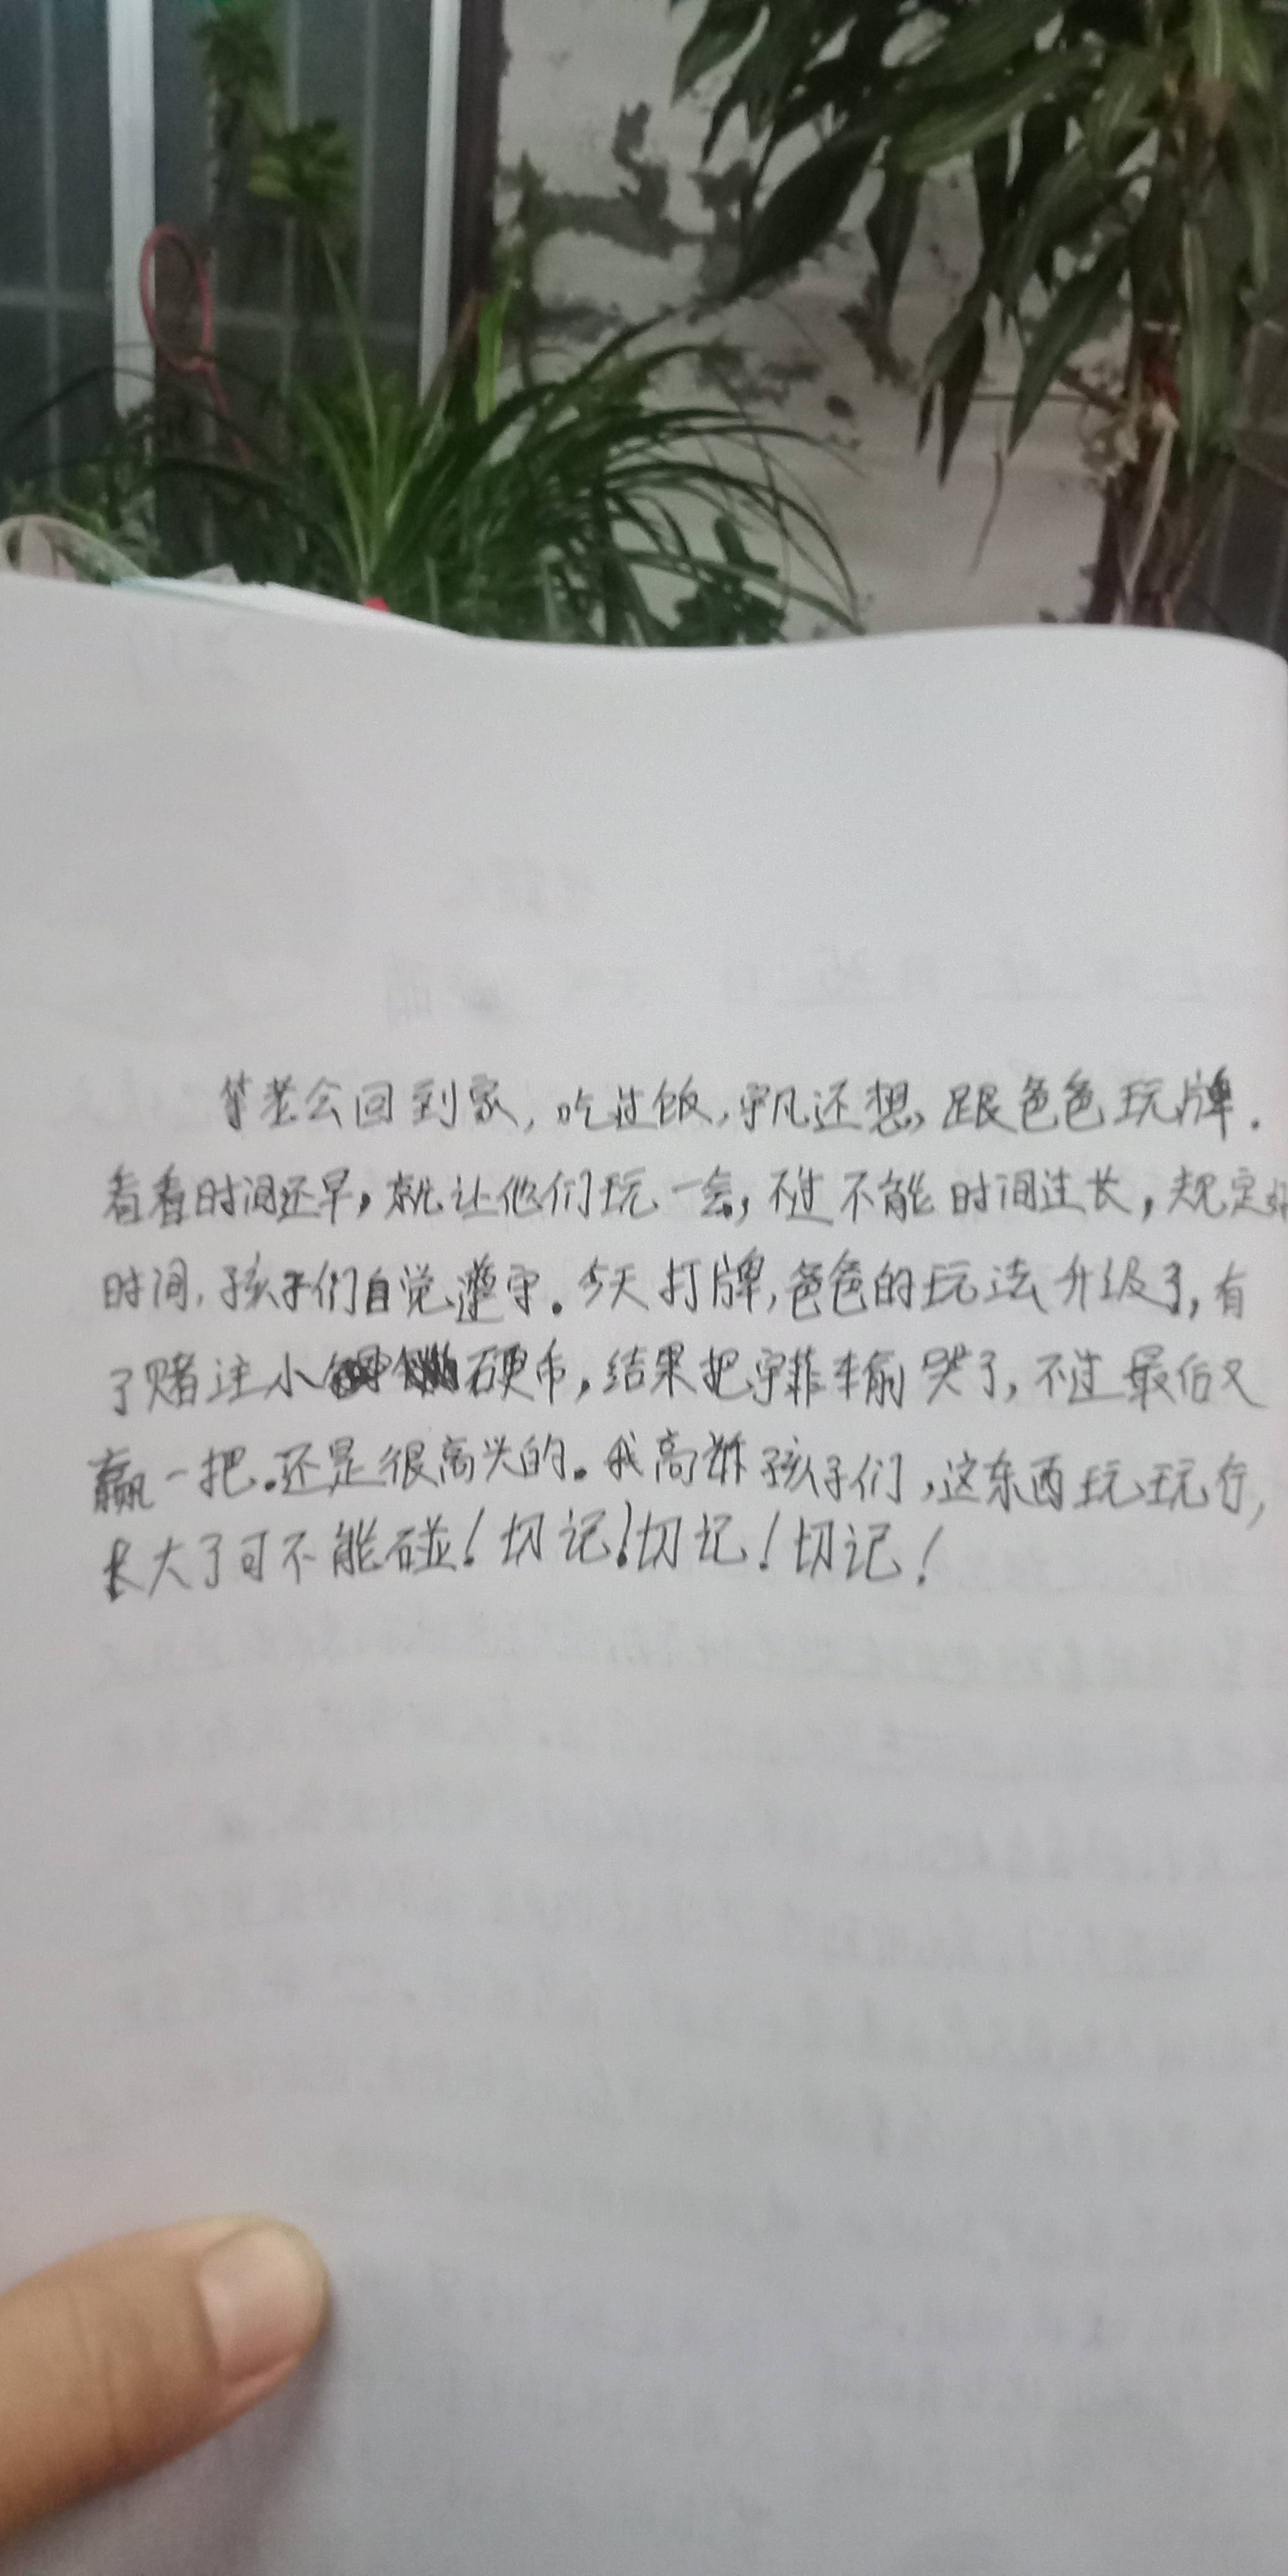 等老公回到家,吃过饭,宇凡还想,跟爸爸玩牌.
看看时间还早,就让他们玩一会,不过不能时间过长,规定好
时间,孩子们自觉遵守。今天打牌,爸爸的玩法升级了,有
了赌注小硬币,结果把宇菲输哭了,不过最后又
赢一把.还是很高兴的。我高诉孩子们,这东西玩玩行,
长大了可不能碰!切记!切记!切记!